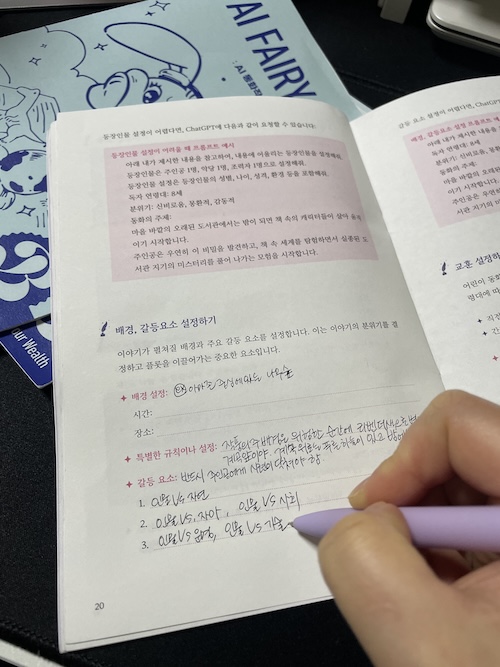 AI FAIRY
: AI 동화
our Wealth
등장인물 설정이 어렵다면, ChatGPT에 다음과 같이 요청할 수 있습니다.
등장인물 설정이 어려울 때 프롬프트 예시
아래 내가 제시한 내용을 참고하여, 내용에 어울리는 등장인물을 설정해줘.
등장인물은 주인공 1명, 악당 1명, 조력자 1명으로 설정해줘.
등장인물 설정은 등장인물의 성별, 나이, 성격, 환경 등을 포함해줘.
독자 연령대: 8세
분위기: 신비로움, 몽환적, 감동적
동화의 주제:
마을 바깥의 오래된 도서관에서는 밤이 되면 책 속의 캐릭터들이 살아 움직
이기 시작합니다.
주인공은 우연히 이 비밀을 발견하고, 책 속 세계를 탐험하면서 실종된 도
서관 지기의 미스터리를 풀어 나가는 모험을 시작합니다.
배경, 갈등요소 설정하기
이야기가 펼쳐질 배경과 주요 갈등 요소를 설정합니다. 이는 이야기의 분위기를 결
정하고 플롯을 이끌어가는 중요한 요소입니다.
배경 설정:
시간:
장소:
특별한 규칙이나 설정:
갈등 요소: 반드시 주인공에게
1. 인물 VS 자연
2. 인물 VS. 자아, 인물 VS 사회
3. 인물 VS 운명, 인물 VS 기술
20
갈등 요소 설정이 어렵다면, Cha
배경, 갈등요소 설정 프롬프트 예
아래 내가 제시한
독자 연령대: 8세
분위기: 신비로움, 몽
동화의 주제:
마을 바깥의 오
이기 시작합니
주인공은 우연
서관 지기의
교훈 설정하
어린이 동화
령대에 따
직접
간